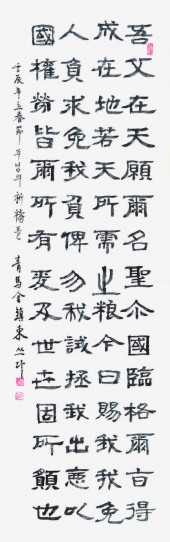 吾父在天願爾名聖尒國臨格爾旨得
成在地若天所需之粮今日賜我我免
人負求免我負俾勿我試拯我出惡以
國權榮皆爾所有爰及世世固所願也
壬辰年立春節 주님의 祈禱 青馬金東